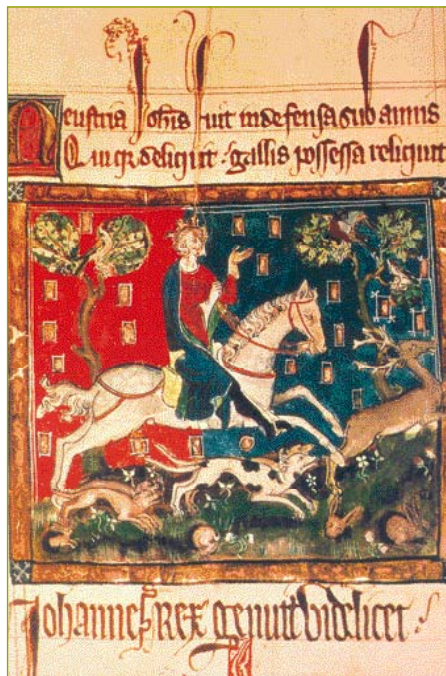 Neustria Joh̅is fuit indefensa sub annis
Qui deliquit · gallis possessa reliquit
Johannes Rex genuit videlicet